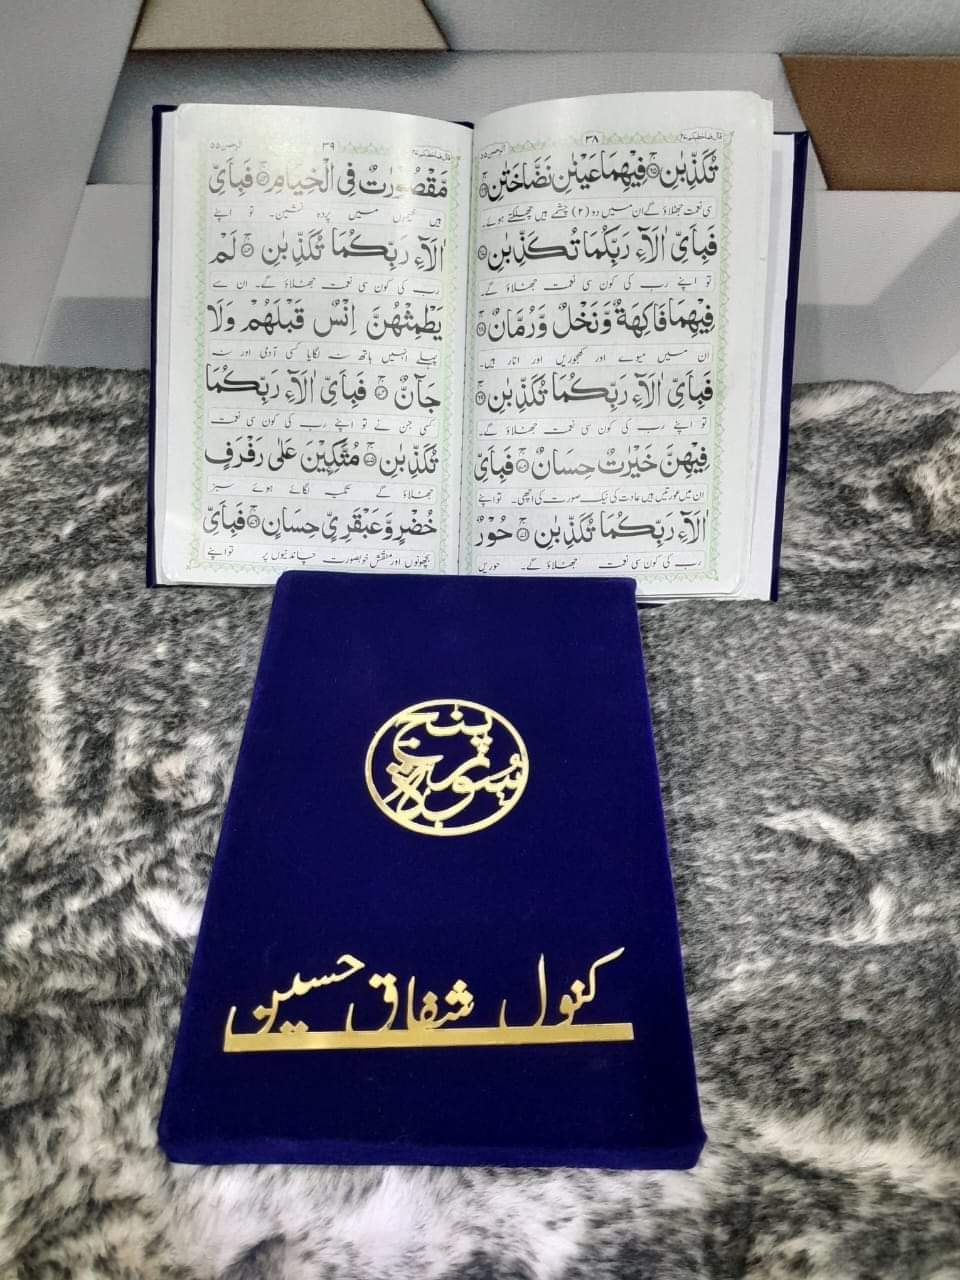 قال فما خطبكم ٢٧
٣٨
الرحمن ٥٥
تُكَذِّبٰنِ ۝٦٥ فِيْهِمَا عَيْنٰنِ نَضَّاخَتٰنِ ۝٦٦
سی نعمت جھٹلاؤ گے ان میں دو (۲) چشمے ہیں چھلکتے ہوئے۔
فَبِاَيِّ اٰلَآءِ رَبِّكُمَا تُكَذِّبٰنِ ۝٦٧
تو اپنے رب کی کون سی نعمت جھٹلاؤ گے۔
فِيْهِمَا فَاكِهَةٌ وَّنَخْلٌ وَّرُمَّانٌ ۝٦٨
ان میں میوے اور کھجوریں اور انار ہیں۔
فَبِاَيِّ اٰلَآءِ رَبِّكُمَا تُكَذِّبٰنِ ۝٦٩
تو اپنے رب کی کون سی نعمت جھٹلاؤ گے۔
فِيْهِنَّ خَيْرٰتٌ حِسَانٌ ۝٧٠ فَبِاَيِّ
ان میں عورتیں ہیں عادت کی نیک صورت کی اچھی۔ تو اپنے
اٰلَآءِ رَبِّكُمَا تُكَذِّبٰنِ ۝٧١ حُوْرٌ
رب کی کون سی نعمت جھٹلاؤ گے۔ حوریں
قال فما خطبكم ٢٧
٣٩
الرحمن ٥٥
مَّقْصُوْرٰتٌ فِی الْخِيَامِ ۝٧٢ فَبِاَيِّ
ہیں خیموں میں پردہ نشین۔ تو اپنے
اٰلَآءِ رَبِّكُمَا تُكَذِّبٰنِ ۝٧٣ لَمْ
رب کی کون سی نعمت جھٹلاؤ گے۔ ان سے
يَطْمِثْهُنَّ اِنْسٌ قَبْلَهُمْ وَلَا
پہلے انہیں ہاتھ نہ لگایا کسی آدمی اور نہ
جَآنٌّ ۝٧٤ فَبِاَيِّ اٰلَآءِ رَبِّكُمَا
کسی جن نے تو اپنے رب کی کون سی نعمت
تُكَذِّبٰنِ ۝٧٥ مُتَّكِـِٕيْنَ عَلٰی رَفْرَفٍ
جھٹلاؤ گے تکیہ لگائے ہوئے سبز
خُضْرٍ وَّعَبْقَرِیٍّ حِسَانٍ ۝٧٦ فَبِاَيِّ
بچھونوں اور منقش خوبصورت چاندنیوں پر تو اپنے
پنج
سورہ
کنول شفاق حسین